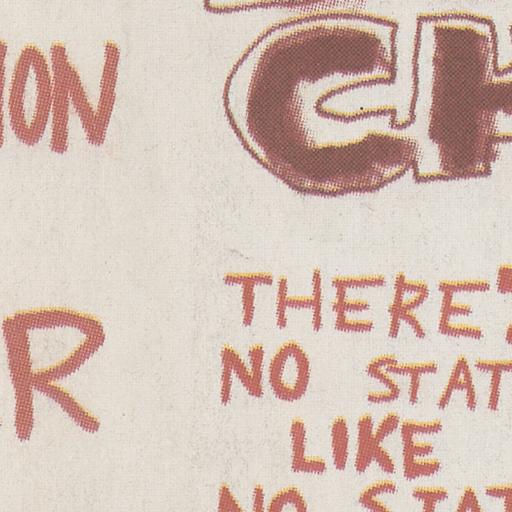 ION
CH
R
THERE'S
NO STAT
LIKE
NO STAT